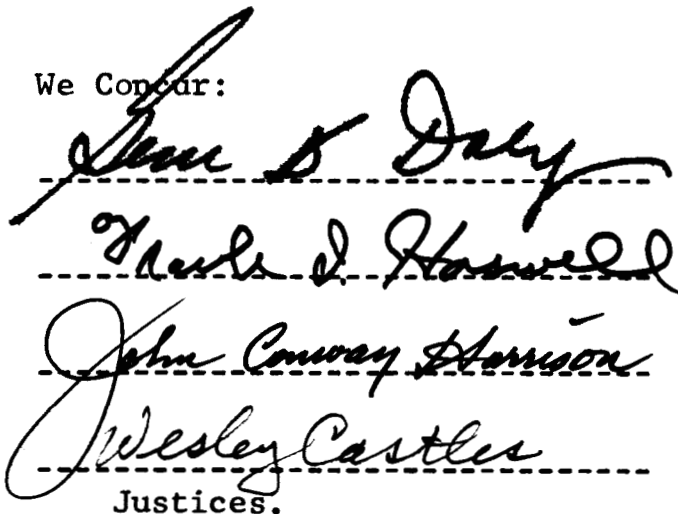 We Concur:
Gene B Daly
Frank I. Haswell
John Conway Harrison
Wesley Castles
Justices.